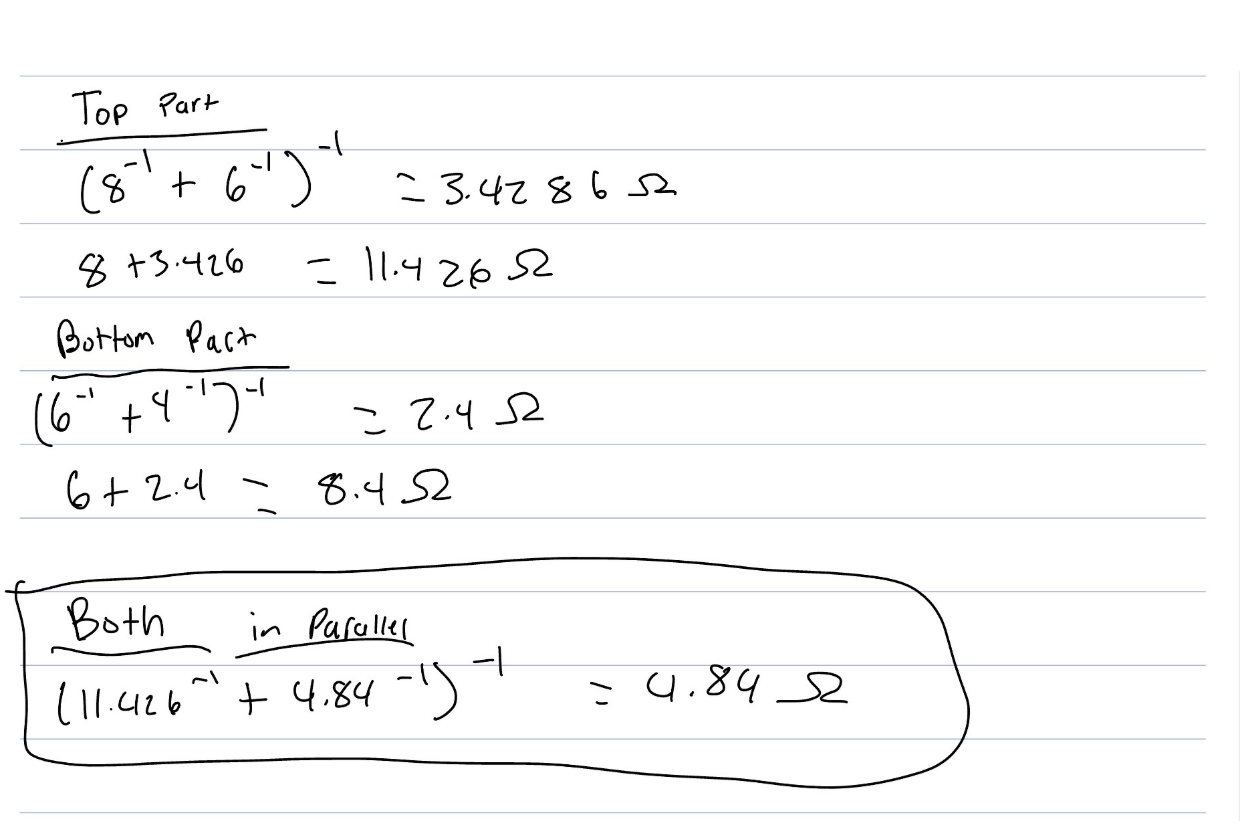 Top Part
(8⁻¹ + 6⁻¹)⁻¹ = 3.4286 Ω
8 + 3.426 = 11.426 Ω
Bottom Part
(6⁻¹ + 4⁻¹)⁻¹ = 2.4 Ω
6 + 2.4 = 8.4 Ω
Both in Parallel
(11.426⁻¹ + 4.84⁻¹)⁻¹ = 4.84 Ω